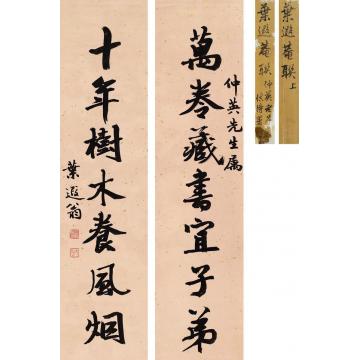 萬卷藏書宜子弟
仲英先生属
十年樹木養風烟
葉遐翁
葉遐菴聯
上
葉遐菴聯